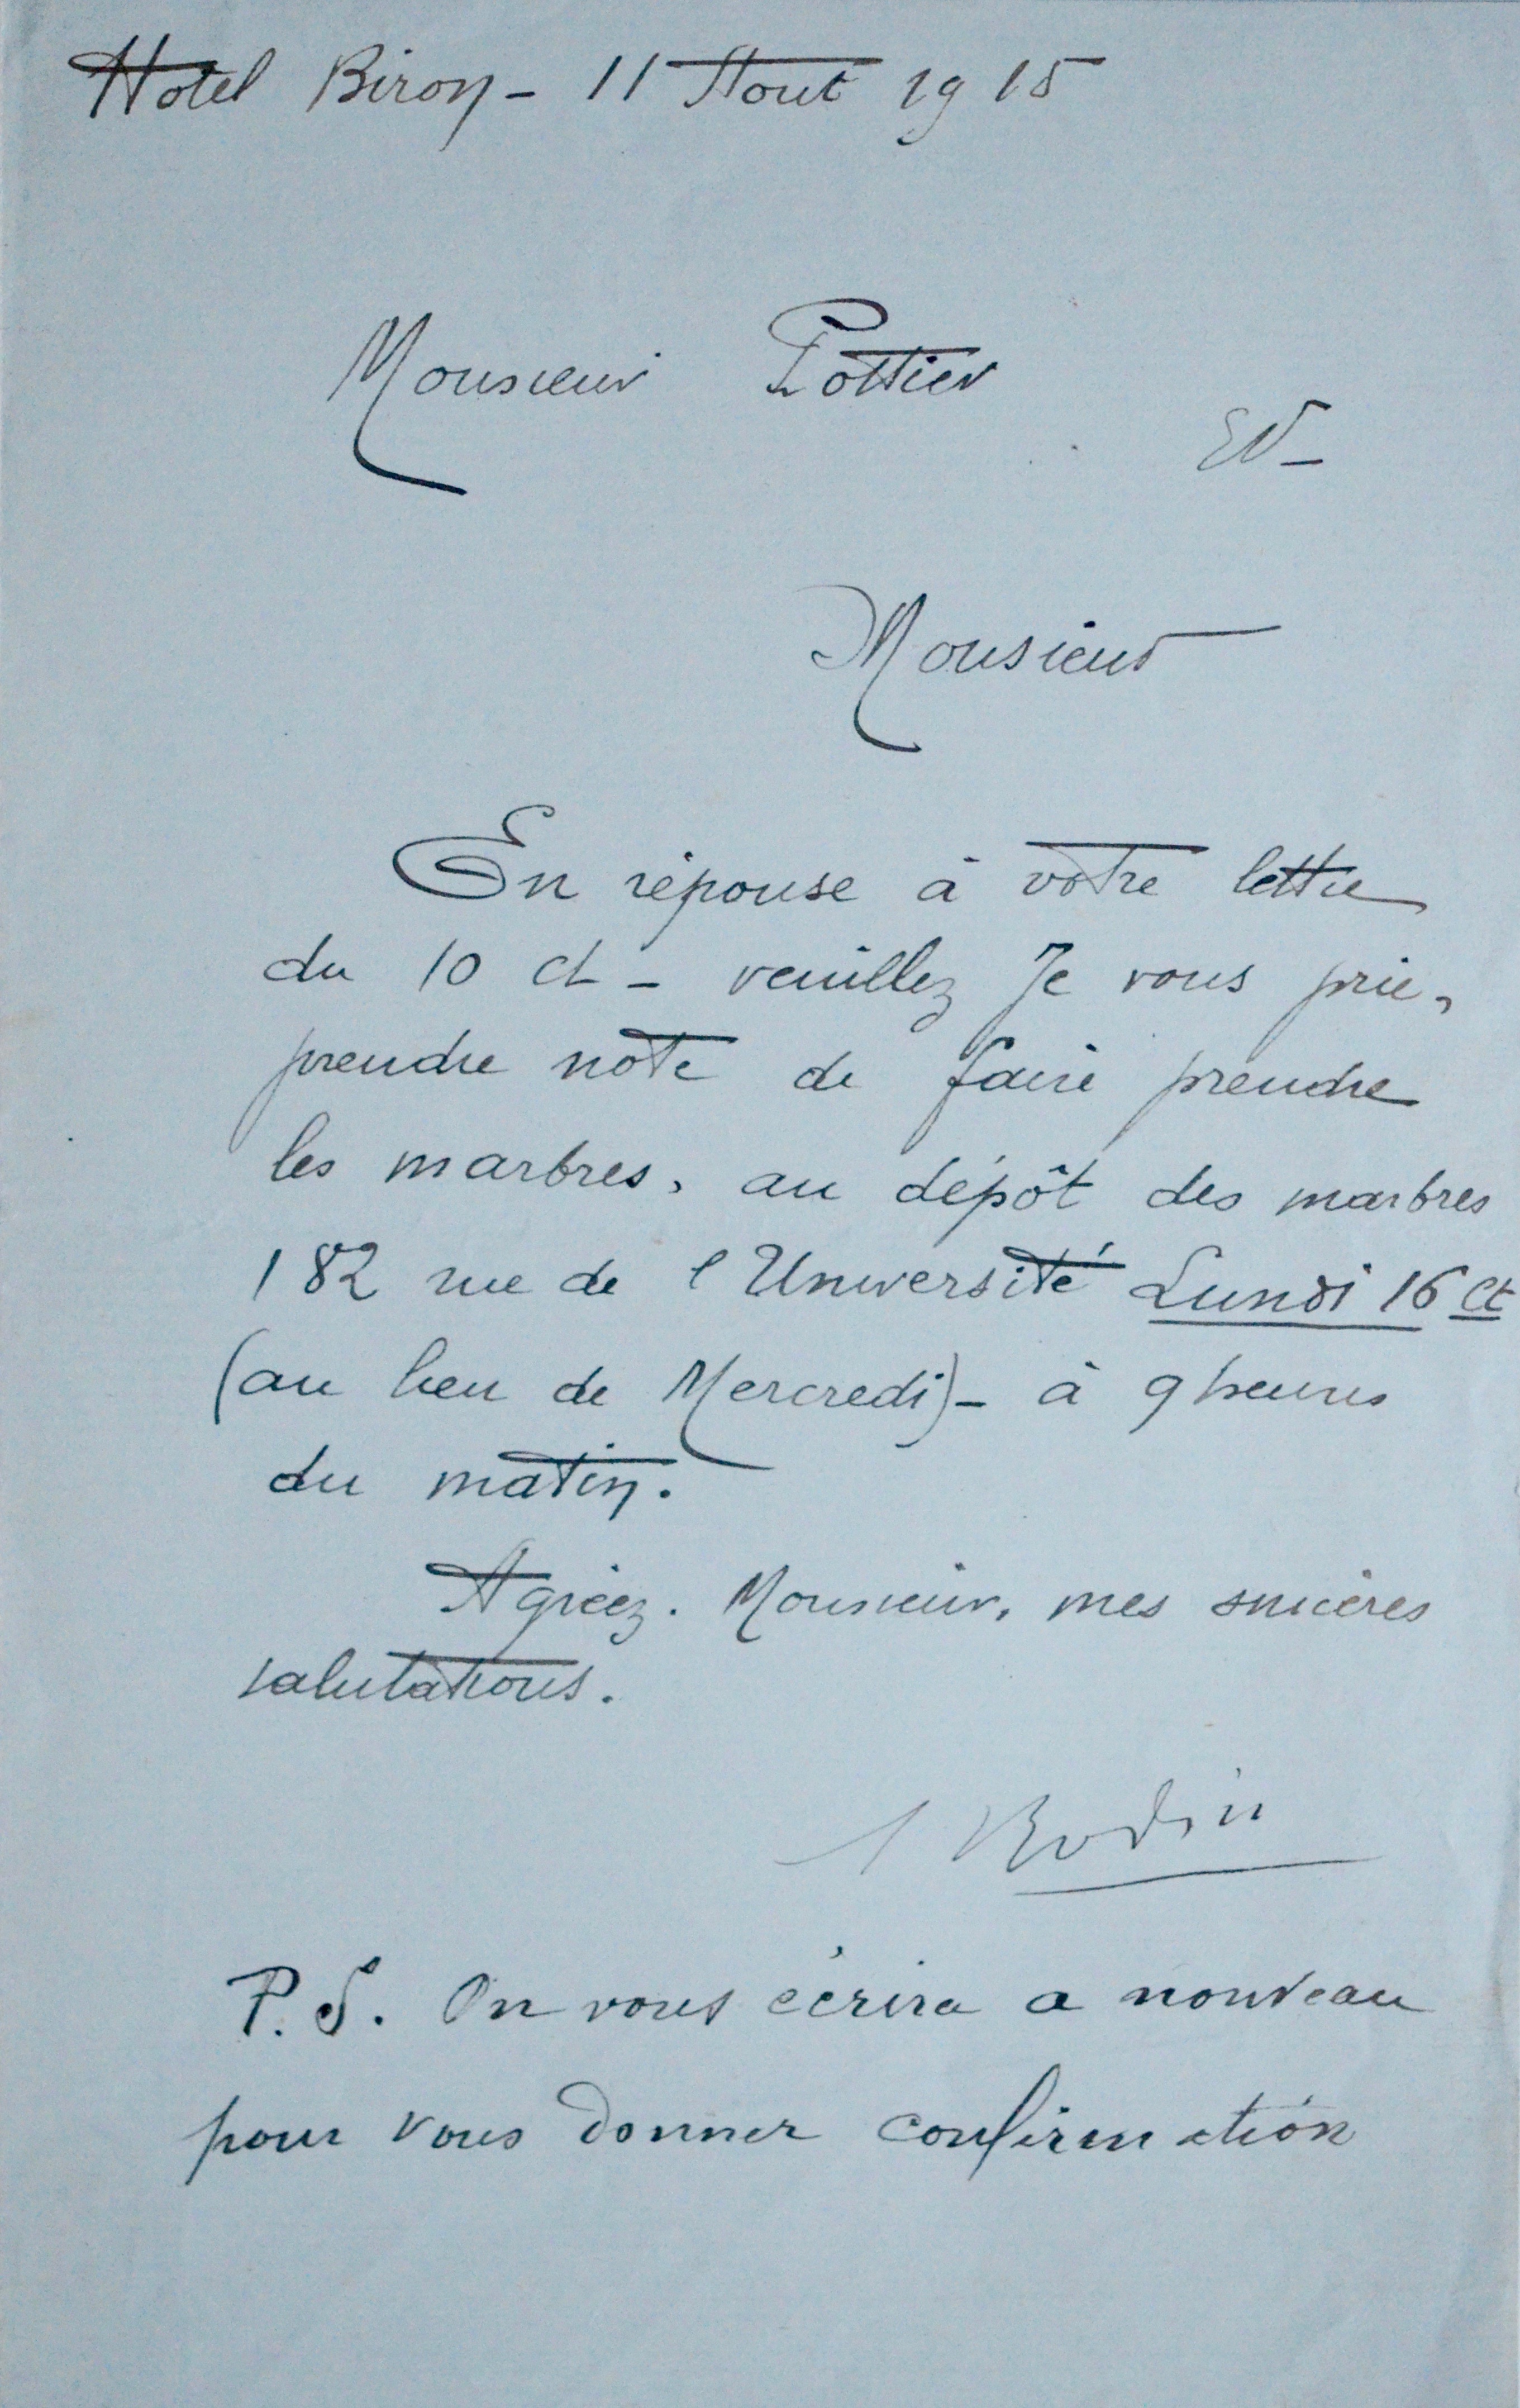 Hotel Biron - 11 Aout 1915
Monsieur Pottier
EV -
Monsieur
En réponse à votre lettre
du 10 ct - veuillez Je vous prie,
prendre note de faire prendre
les marbres, au dépôt des marbres
182 rue de l'Université Lundi 16 ct
(au lieu de Mercredi) - à 9 heures
du matin.
Agréez. Monsieur, mes sincères
salutations.
A Rodin
P.S. On vous écrira a nouveau
pour vous donner confirmation